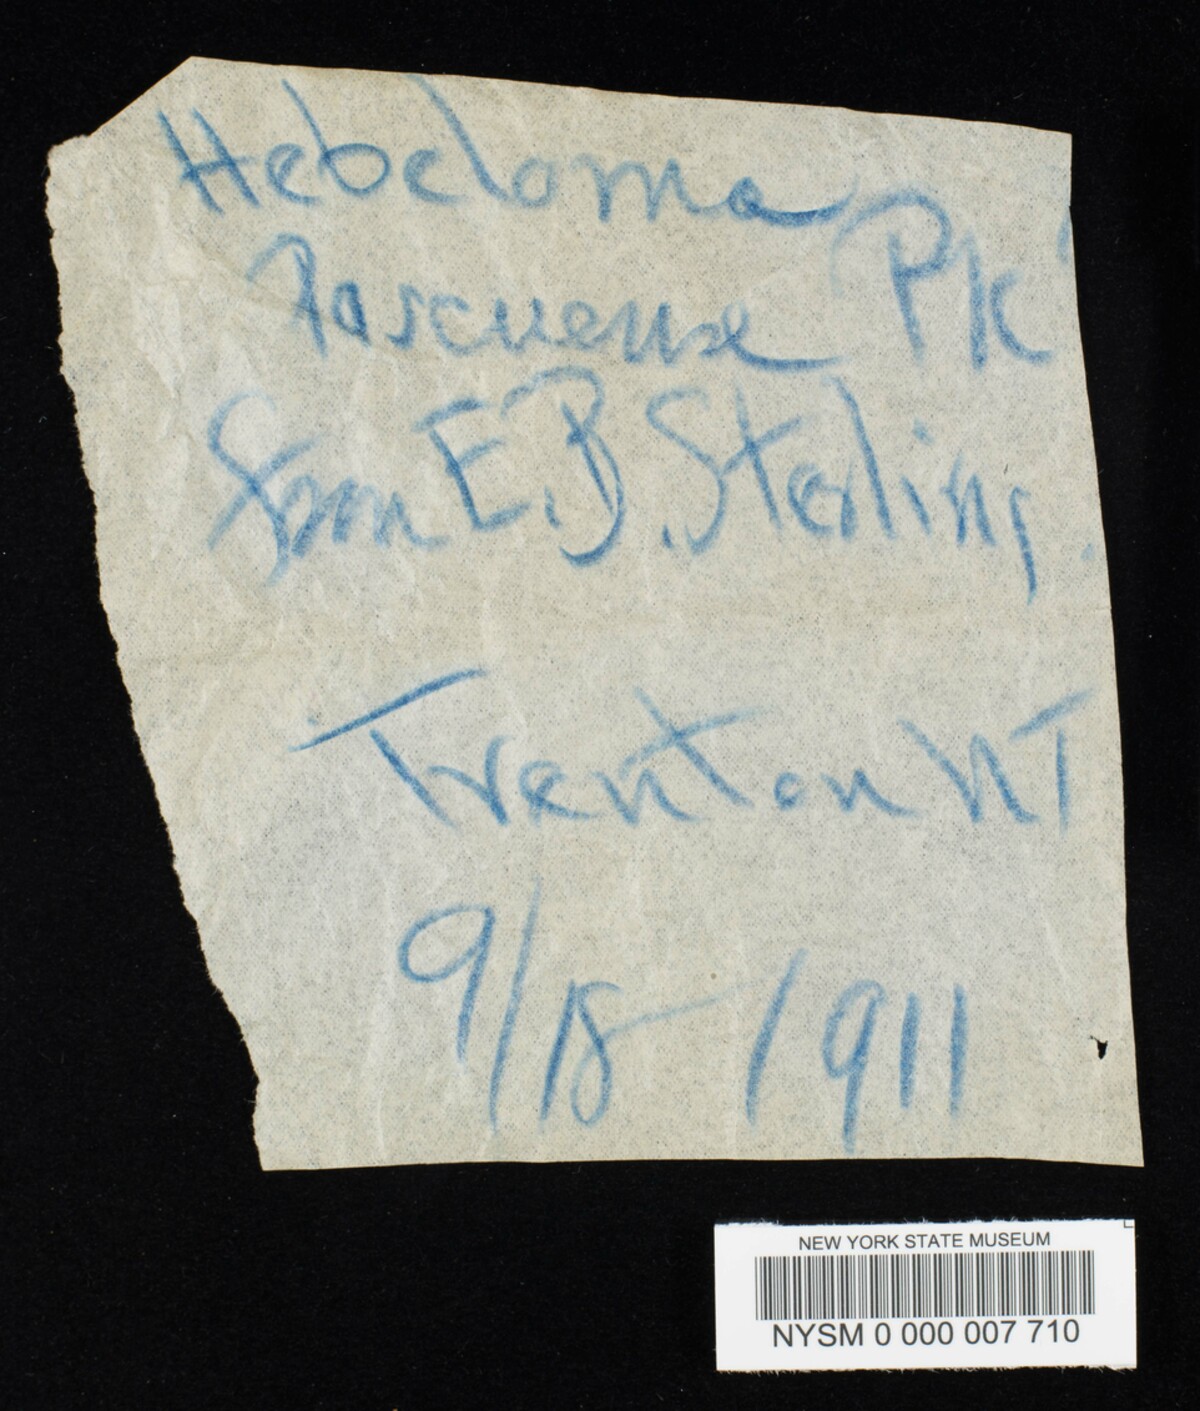 Hebeloma
Pascuense Pk
from E.B. Sterling.
Trenton NJ
9/18 1911
NEW YORK STATE MUSEUM
NYSM 0 000 007 710